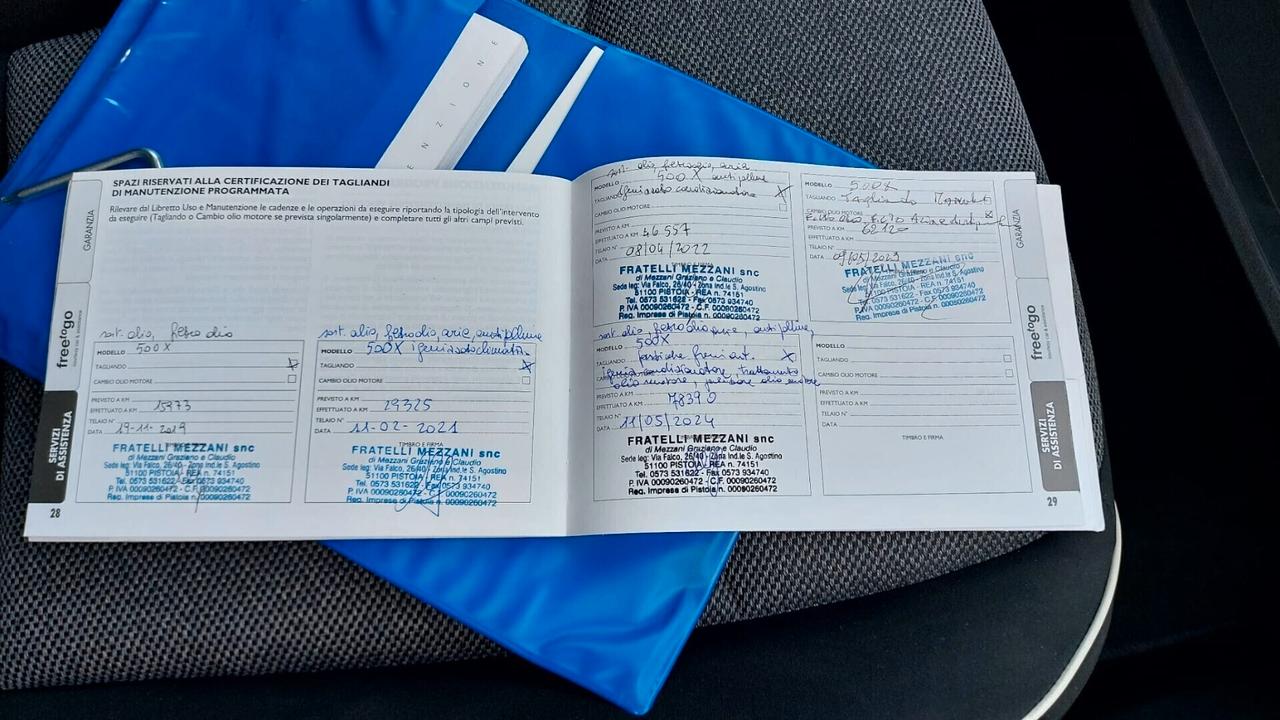 E N Z I O N E
SPAZI RISERVATI ALLA CERTIFICAZIONE DEI TAGLIANDI
DI MANUTENZIONE PROGRAMMATA
Rilevare dal Libretto Uso e Manutenzione le cadenze e le operazioni da eseguire riportando la tipologia dell'intervento
da eseguire (Tagliando o Cambio olio motore se prevista singolarmente) e completare tutti gli altri campi previsti.
GARANZIA
freetogo
SERVIZI
DI ASSISTENZA
sost. olio, filtro olio
MODELLO 500X
TAGLIANDO X
CAMBIO OLIO MOTORE
PREVISTO A KM
EFFETTUATO A KM 15973
TELAIO N°
DATA 19-11-2019
TIMBRO E FIRMA
FRATELLI MEZZANI snc
di Mezzani Graziano e Claudio
Sede leg: Via Falco, 26/40 - Zona Ind.le S. Agostino
51100 PISTOIA - REA n. 74151
Tel. 0573 531622 - Fax 0573 934740
P. IVA 00090260472 - C.F. 00090260472
Reg. Imprese di Pistoia n. 00090260472
28
sost. olio, filtro olio, aria, antipolline
MODELLO 500X igenizzato climatiz.
TAGLIANDO X
CAMBIO OLIO MOTORE
PREVISTO A KM
EFFETTUATO A KM 29325
TELAIO N°
DATA 11-02-2021
TIMBRO E FIRMA
FRATELLI MEZZANI snc
di Mezzani Graziano e Claudio
Sede leg: Via Falco, 26/40 - Zona Ind.le S. Agostino
51100 PISTOIA - REA n. 74151
Tel. 0573 531622 - Fax 0573 934740
P. IVA 00090260472 - C.F. 00090260472
Reg. Imprese di Pistoia n. 00090260472
sost. olio, filtro olio, aria
MODELLO 500X antipolline
TAGLIANDO igenizzato condizionatore X
CAMBIO OLIO MOTORE
PREVISTO A KM
EFFETTUATO A KM 46557
TELAIO N°
DATA 08/04/2022
FRATELLI MEZZANI snc
di Mezzani Graziano e Claudio
Sede leg: Via Falco, 26/40 - Zona Ind.le S. Agostino
51100 PISTOIA - REA n. 74151
Tel. 0573 531622 - Fax 0573 934740
P. IVA 00090260472 - C.F. 00090260472
Reg. Imprese di Pistoia n. 00090260472
MODELLO 500X
TAGLIANDO Tagliando
CAMBIO OLIO MOTORE X
Filtro olio
PREVISTO A KM 62120
EFFETTUATO A KM
TELAIO N°
DATA 09/05/2023
FRATELLI MEZZANI snc
di Mezzani Graziano e Claudio
Sede leg: Via Falco, 26/40 - Zona Ind.le S. Agostino
51100 PISTOIA - REA n. 74151
Tel. 0573 531622 - Fax 0573 934740
P. IVA 00090260472 - C.F. 00090260472
Reg. Imprese di Pistoia n. 00090260472
sost. olio, filtro olio, aria, antipolline,
MODELLO 500X
TAGLIANDO pastiche freni ant. X
igenizz. condizionatore, trattamento
olio motore, olio motore
PREVISTO A KM
EFFETTUATO A KM 78390
TELAIO N°
DATA 11/05/2024
FRATELLI MEZZANI snc
di Mezzani Graziano e Claudio
Sede leg: Via Falco, 26/40 - Zona Ind.le S. Agostino
51100 PISTOIA - REA n. 74151
Tel. 0573 531622 - Fax 0573 934740
P. IVA 00090260472 - C.F. 00090260472
Reg. Imprese di Pistoia n. 00090260472
MODELLO
TAGLIANDO
CAMBIO OLIO MOTORE
PREVISTO A KM
EFFETTUATO A KM
TELAIO N°
DATA
TIMBRO E FIRMA
GARANZIA
freetogo
SERVIZI
DI ASSISTENZA
29